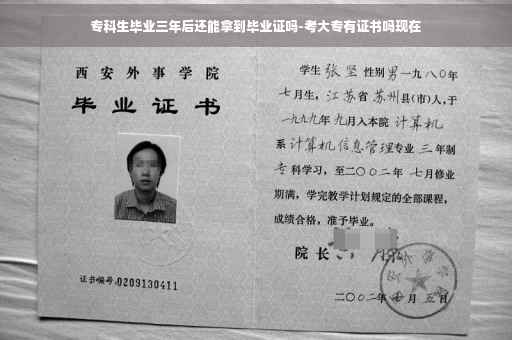 专科生毕业三年后还能拿到毕业证吗-考大专有证书吗现在
西安外事学院
毕业证书
证书编号:0209130411
学生 张坚 性别 男 一九八〇年
七月生，江苏省 苏州 县(市)人，于
一九九九年九月入本院 计算机
系 计算机信息管理 专业 三 年制
专科学习，至二〇〇二年 七月修业
期满，学完教学计划规定的全部课程，
成绩合格，准予毕业。
院长
二〇〇二年 月 五日